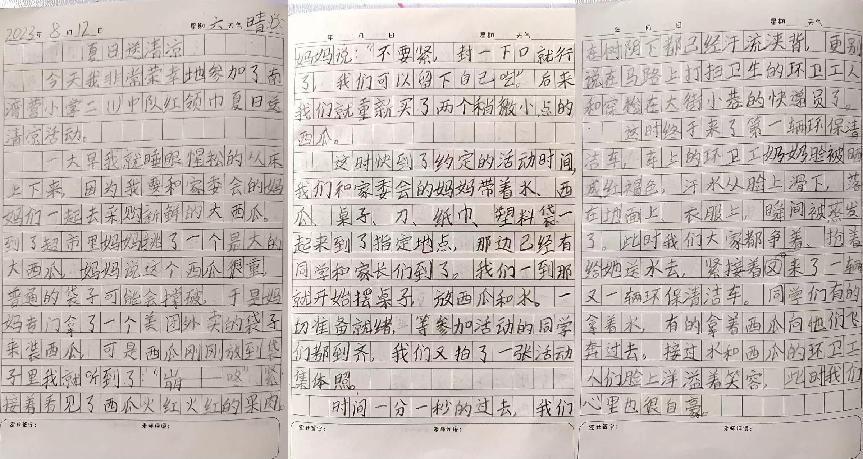 2023年8月12日 星期六 天气晴
夏日送清凉
今天我非常荣幸地参加了南
湾营小学二(1)中队红领巾夏日送
清凉活动。
一大早我就睡眼惺松的从床
上下来,因为我要和家委会的妈
妈们一起去采购新鲜的大西瓜。
到了超市里妈妈挑了一个最大的
大西瓜,妈妈说这个西瓜很重,
普通的袋子可能会撑破,于是妈
妈专门拿了一个美团外卖的袋子
来装西瓜,可是西瓜刚刚放到袋
子里我就听到了:“嘣——咚”紧
接着看见了西瓜火红火红的果肉。
家长签字: 老师评语:
年 月 日 星期 天气
妈妈说:“不要紧,封一下口就行
了,我们可以留下自己吃。”后来
我们就重新买了两个稍微小点的
西瓜。
这时快到了约定的活动时间,
我们和家委会的妈妈带着水、西
瓜、桌子、刀、纸巾、塑料袋一
起来到了指定地点,那边已经有
同学和家长们到了。我们一到那
就开始摆桌子,放西瓜和水。一
切准备就绪,等参加活动的同学
们都到齐,我们又拍了一张活动
集体照。
时间一分一秒的过去,我们
家长签字: 老师评语:
年 月 日 星期 天气
在树阴下都已经汗流浃背,更别
说在马路上打扫卫生的环卫工人
和穿梭在大街小巷的快递员了。
这时终于来了第一辆环保清
洁车,车上的环卫工奶奶脸被晒
成红褐色,汗水从脸上滑下,落
在地面上、衣服上,瞬间被蒸发
了。此时我们大家都争着、抢着
给她送水去,紧接着又来了一辆
又一辆环保清洁车。同学们有的
拿着水,有的拿着西瓜向他们飞
奔过去。接过水和西瓜的环卫工
人们脸上洋溢着笑容,此时我们
心里也很自豪。
家长签字: 老师评语: